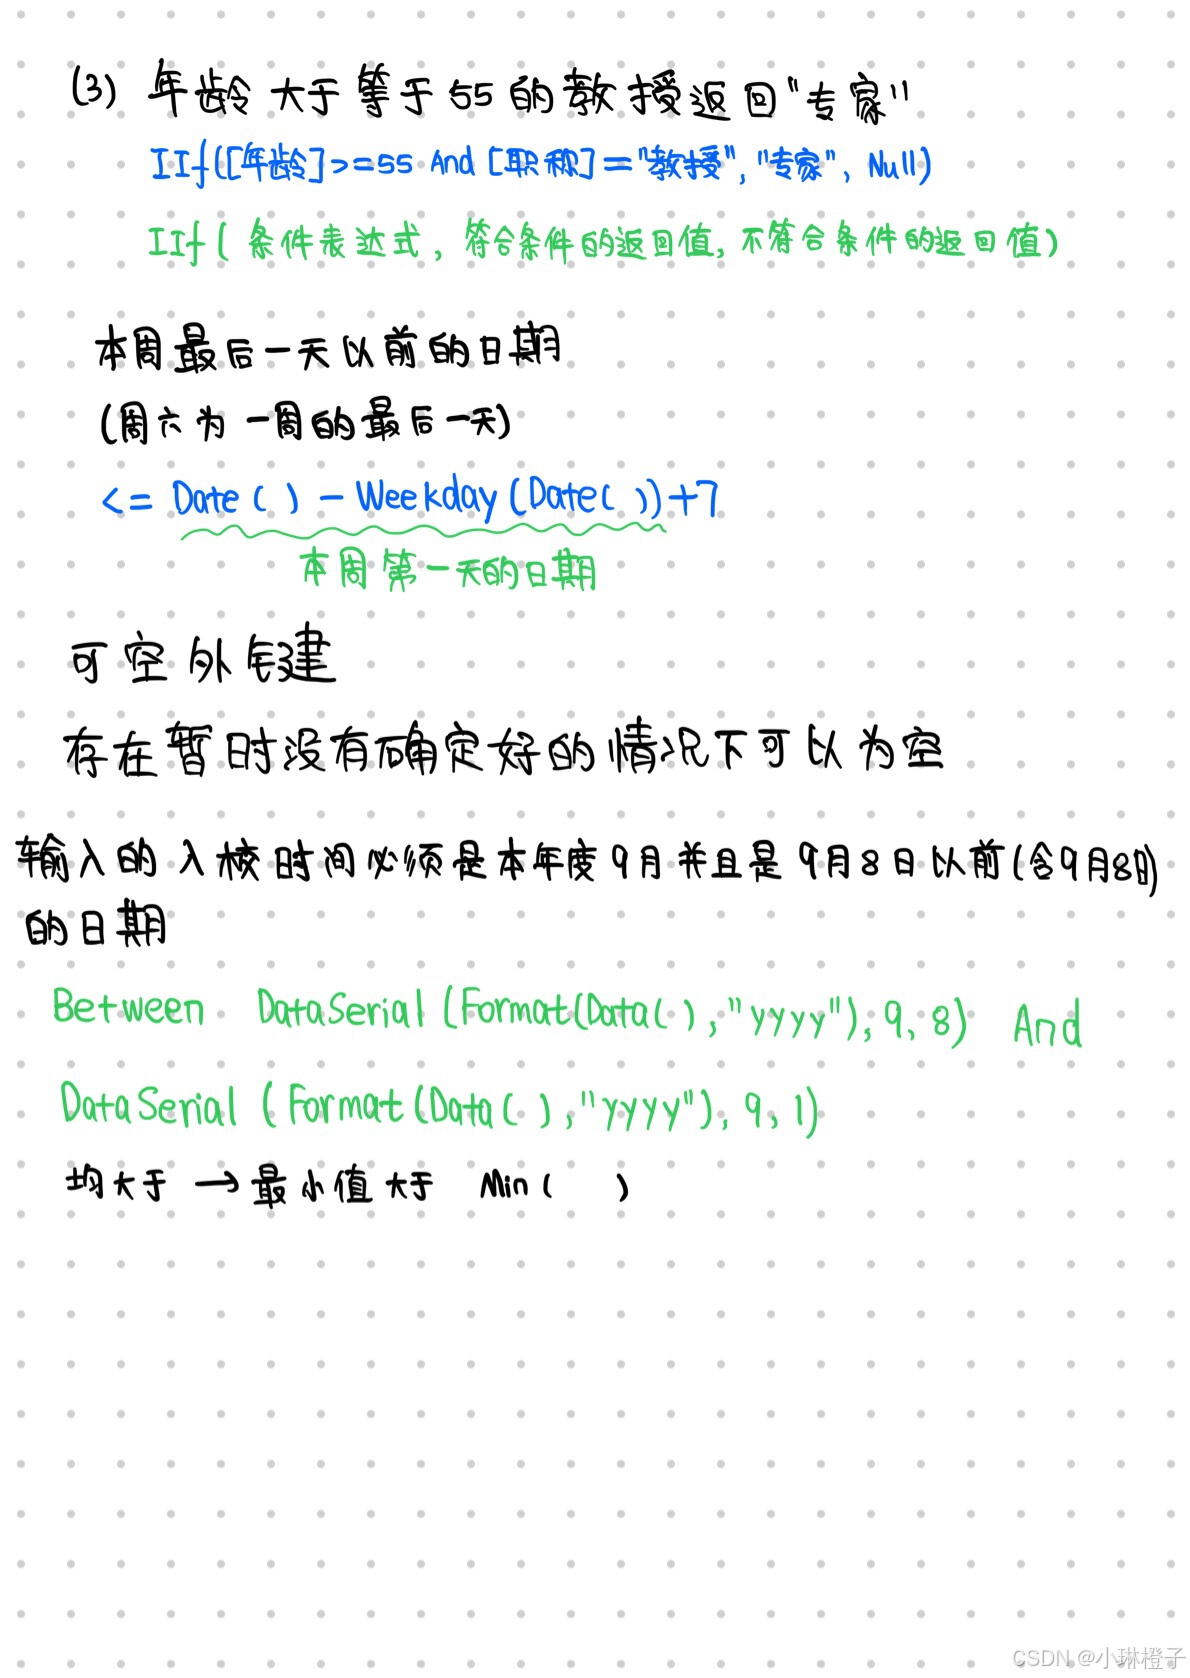 (3) 年龄大于等于55的教授返回"专家"
IIf([年龄]>=55 And [职称]="教授", "专家", Null)
IIf( 条件表达式, 符合条件的返回值, 不符合条件的返回值)
本周最后一天以前的日期
(周六为一周的最后一天)
<= Date( ) - Weekday(Date( ))+7
本周第一天的日期
可空外键
存在暂时没有确定好的情况下可以为空
输入的入校时间必须是本年度9月并且是9月8日以前(含9月8日)
的日期
Between DataSerial(Format(Data( ),"yyyy"), 9, 8) And
DataSerial (Format(Data( ),"yyyy"), 9, 1)
均大于 → 最小值大于 Min( )
CSDN @小琳橙子